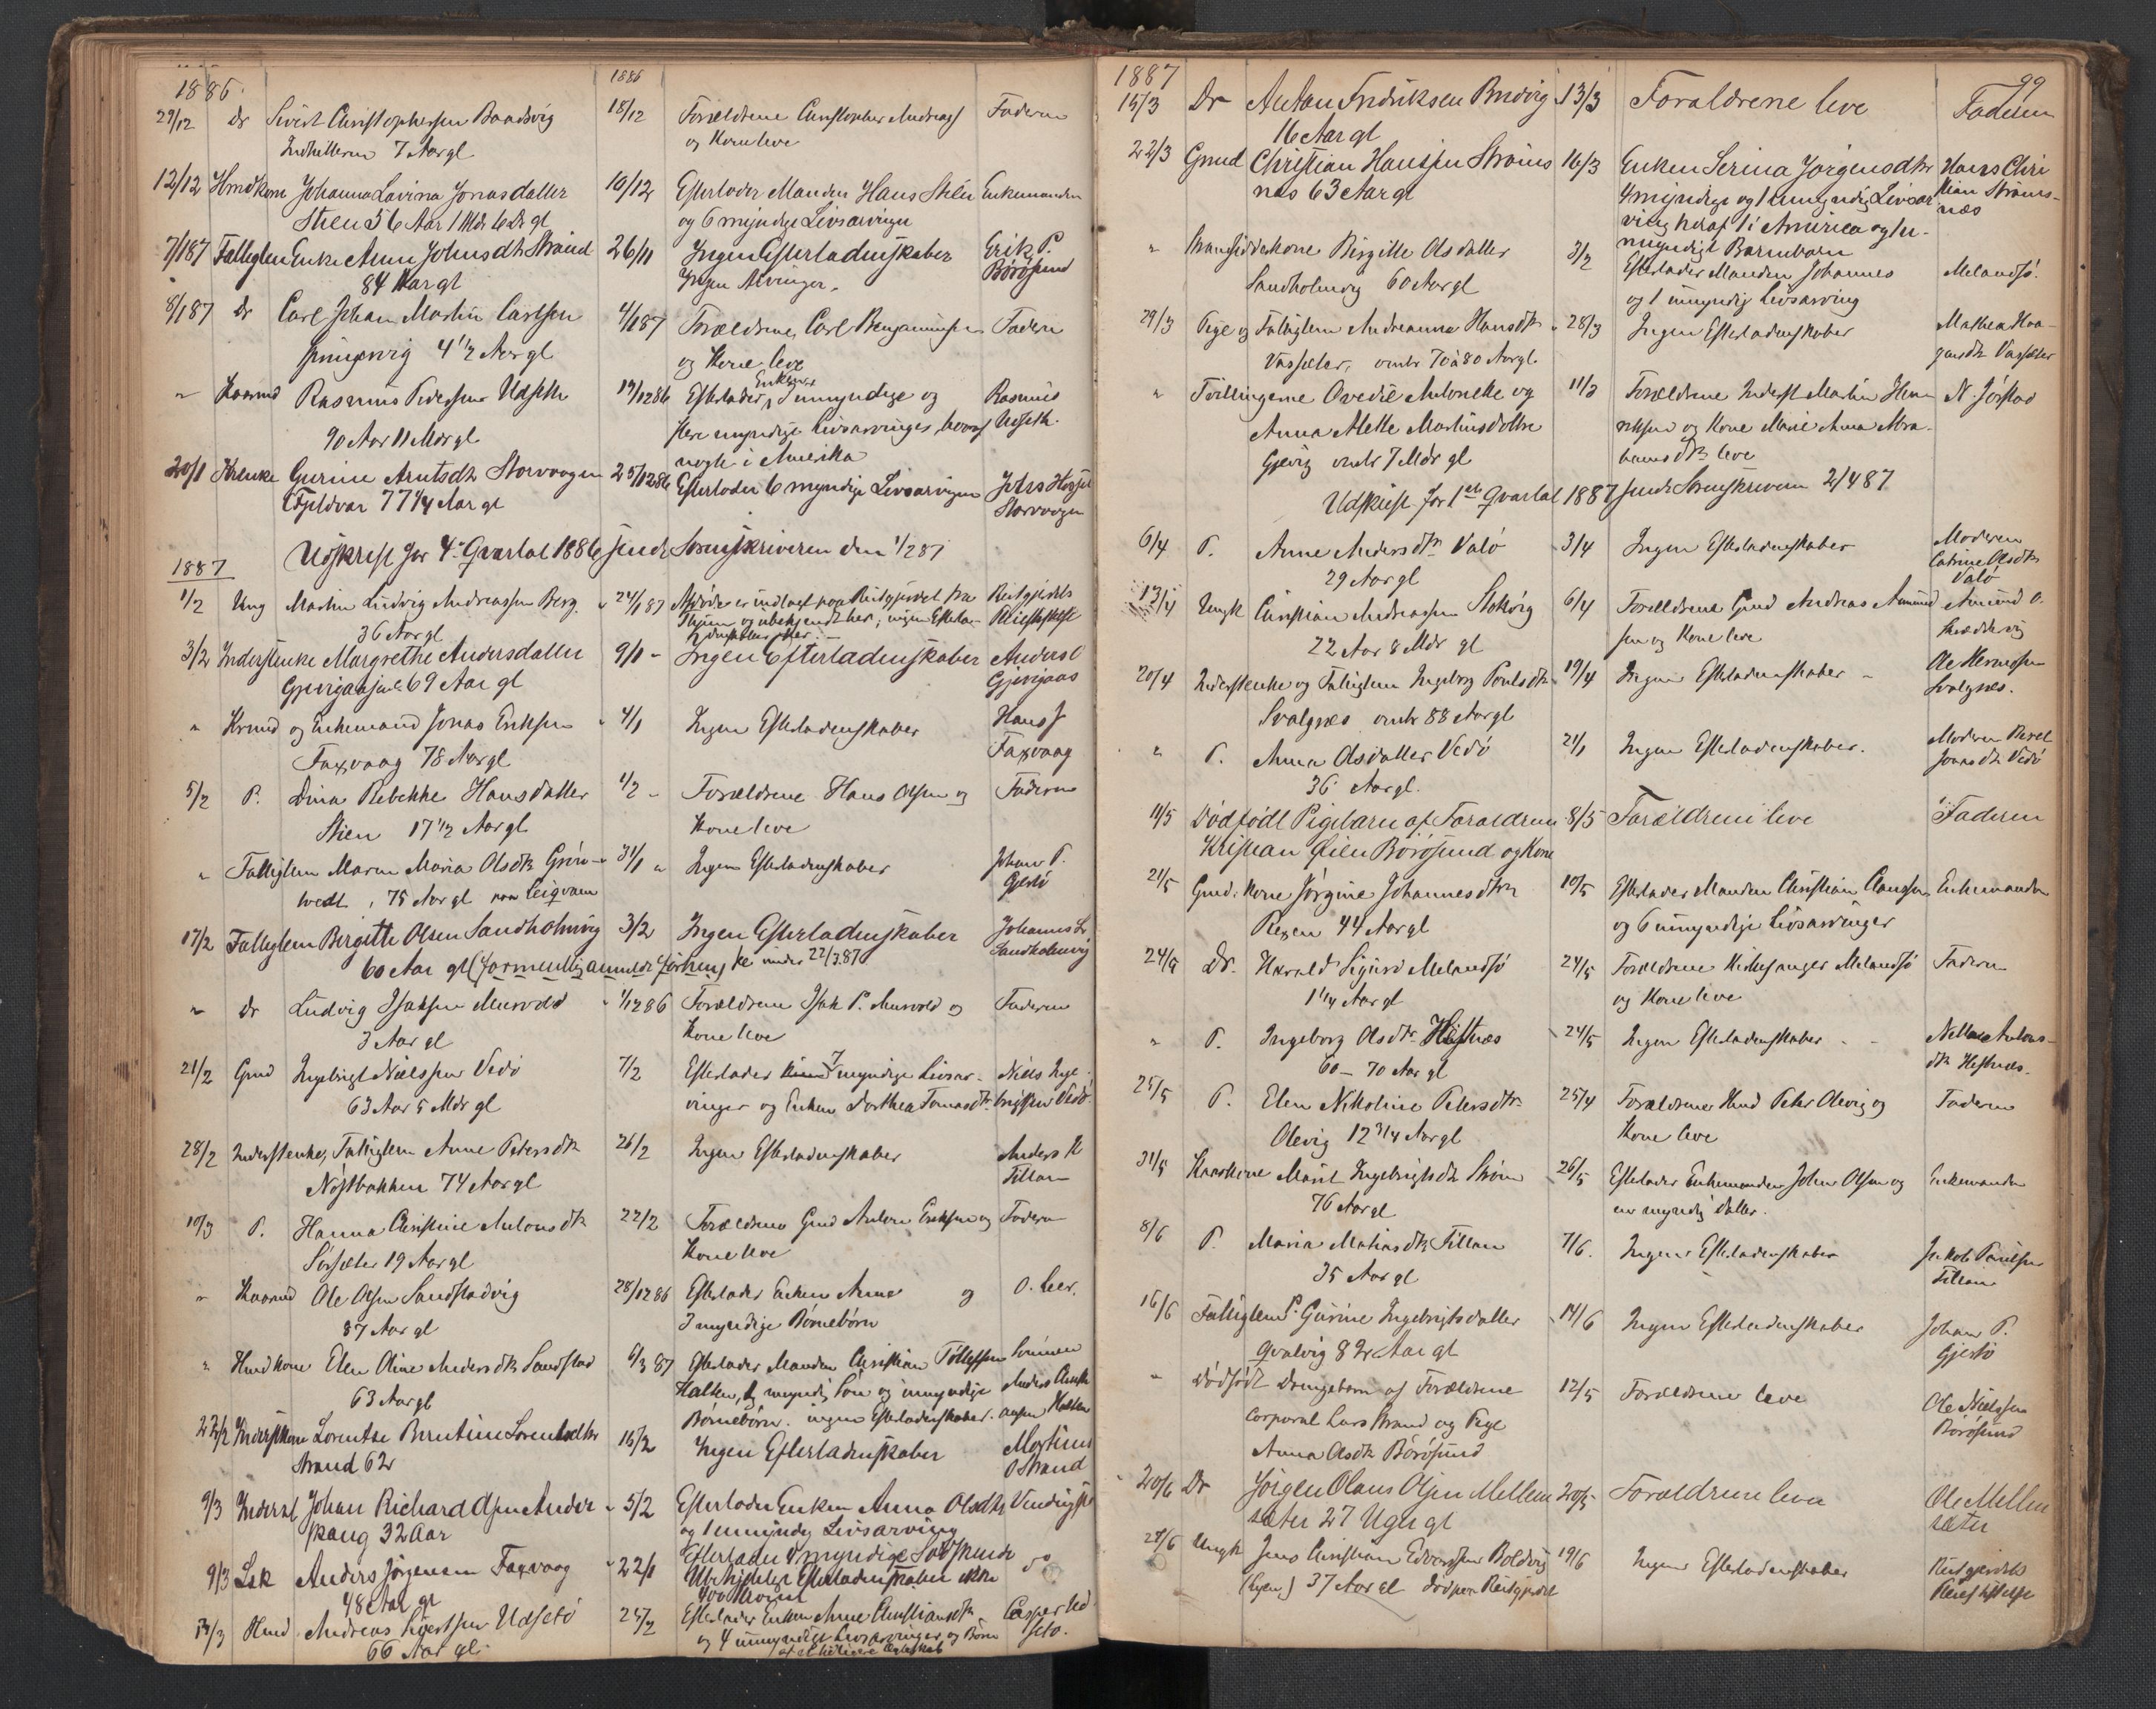 1886.
1886
29/12 Dr Sivert Christophersen Baadsvig 18/12 Forældrene Christopher Andreas Faderen
Indhitteren 7 Aar gl og Kone leve
12/12 Hmdkone Johanna Lavina Jonasdatter 10/12 Efterlader Manden Hans Stein Enkemanden
Steen 56 Aar 1 Md 6 D gl og 6 myndige Livsarvinger
7/1 87 Fattiglem Enke Ane Johnsdtr Strand 26/11 Ingen Efterladenskaber Erik P.
84 Aar gl Ingen Arvinger. Børøsund
8/1 87 Dr Carl Johan Martin Carlsen 4/1 87 Forældrene Carl Benjaminsen Faderen
4 1/2 Aar gl og Kone leve
" Kaarmd Rasmus Pedersen Udseth 19/12 86 Efterlader Enke umyndige og Rasmus
90 Aar 11 Mdr gl flere myndige Livsarvinger, hvoraf Udseth.
nogle i Amerika
20/1 Gurine Arntsdtr Storvaagen 25/12 86 Efterlader 6 myndige Livsarvinger Johs
Fjeldvær 77 1/4 Aar gl Storvaagen
Udskrift for 4de Qvartal 1886 sendt Sorenskriveren den 1/2 87
1887
1/2 Ung Martin Ludvig Andreassen Berg 24/1 87 Afdøde er indlagt paa Reitgjerdet fra Reitgjerdets
36 Aar gl og ubekjendt her; ingen Efterla- Pleiestiftelse
3/2 Inderstenke Margrethe Andersdatter 9/1 - Ingen Efterladenskaber Anders
Gjevigaas 69 Aar gl Gjevigaas
" og Enkemand Jonas Eriksen 4/1 Ingen Efterladenskaber Hans J
Faxvaag 78 Aar gl Faxvaag
5/2 P. Dina Rebekke Hansdatter 1/2 - Forældrene Hans Olsen og Faderen
Stien 17 1/2 Aar gl Kone leve
" Fattiglem Maren Maria Olsdtr Grøn- 31/1 " Ingen Efterladenskaber Johan P.
vedt, 75 Aar gl Gjestø
17/2 Fattiglem Birgitte Olsen Sandholmvig 3/2 Ingen Efterladenskaber Johannes
60 Aar gl (formentlig anmeldt forhen, se under 22/3 87) Sandholmvig
" Dr Ludvig Isaksen Aunvold 1/12 86 Forældrene Isak P. Aunvold og Faderen
3 Aar gl Kone leve
21/2 Gmd Ingebrigt Nielssen Vedø 7/2 Efterlader 7 myndige Livsar- Niels Inge-
63 Aar 5 Mdr gl vinger og Enken Dorthea Tomasdtr brigtsen Vedø
28/2 Inderstenke, Fattiglem Anne Petersdtr 26/2 Ingen Efterladenskaber Anders K
Nøstbakken 74 Aar gl Fillan
10/3 P. Hanna Christine Antonsdtr 22/2 Forældrene Gmd Anton Eriksen og Faderen
Sørsæter 19 Aar gl Kone leve
" Kaarmd Ole Olsen Sandstadvig 28/12 86 Efterlader Enken Anne og O. Leer.
87 Aar gl 3 myndige Børnebørn
" Hmd kone Elen Oline Andersdtr Sandstad 6/3 87 Efterlader Manden Christian Tøllefsen Sønnen
63 Aar gl Halten, 1 myndig Søn og umyndige Anders Christi-
Børnebørn. ingen Efterladenskaber. ansen Halten
22/2 Inderstkone Lorentse Berntine Lorentsdtr 15/2 Ingen Efterladenskaber Martinus
Strand 62 O Strand
9/3 Inderst Johan Richard Olsen Ander- 5/2 Efterlader Enken Anna Olsdtr
skaug 32 Aar og 1 umyndig Livsarving
9/3 Lsk Anders Jørgensen Faxvaag 22/1 Efterlader 4 myndige Sødskende do
48 Aar gl Ubetydelige Efterladenskaber ikke
400 Kroner
14/3 Hmd Andreas Sivertsen Udsetø 25/2 Efterlader Enken Ane Christiansdtr Casper Ud-
66 Aar gl. og 4 umyndige Livsarvinger og Børn setø.
af et tidligere Ægteskab
1887
99
15/3 Dr Anton Fredriksen Bredvig 13/3 Forældrene leve Faderen
16 Aar gl
22/3 Gmd Christian Hansen Strøms- 16/3 Enken Serina Jørgensdtr Hans Chri-
næs 63 Aar gl 4 myndige og 1 umyndig Livsar- stian Strøms-
ving heraf 1 i America og u- næs
myndigt Barnebarn
" Birgitte Olsdatter 3/2 Efterlader Manden Johannes Melandsø.
Sandholmvig 60 Aar gl og 1 umyndig Livsarving
29/3 Pige og Fattiglem Andreanna Hansdtr 28/3 Ingen Efterladenskaber Mathea Haa-
Vassæter, omtr 70 à 80 Aar gl. gensdtr Vassæter
" Tvillingerne Ovedie Antonette og 11/3 Forældrene Inderst Martin Hen- N. Jøstad
Anna Mette Martinsdøttre riksen og Kone Marie Anna Abra-
Gjevig omtr 7 Mdr gl hamsdtr leve
Udskrift for 1ste Qvartal 1887 sendt Sorenskriveren 2/4 87
6/4 P. Anne Andersdtr Valø 3/4 Ingen Efterladenskaber Moderen
29 Aar gl Catrine Olsdtr
Valø
13/4 Ungk Christian Andreassen Stokvig 6/4 Forældrene Gmd Andreas Amund- Amund O.
22 Aar 8 Mdr gl sen og Kone leve
20/4 Inderstenke og Fattiglem Ingeborg Poulsdtr 19/4 Ingen Efterladenskaber - Ole Hermodsen
Svalgnæs omtr 88 Aar gl Svalgnæs.
" P. Anna Olsdatter Vedø 21/1 Ingen Efterladenskaber. Moderen Beret
36 Aar gl. Jonasdtr Vedø
11/5 Dødfødt Pigebarn af Forældrene 8/5 Forældrene leve Faderen
Kristian Øien Børøsund og Kone
21/5 Gmd. Kone Jørgine Johannesdtr 10/5 Efterlader Manden Christian Claussen Enkemanden
Rexen 44 Aar gl og 6 umyndige Livsarvinger
24/5 Dr. Harald Sigurd Melandsø 24/5 Forældrene Kirkesanger Melandsø Faderen
1 1/4 Aar gl og Kone leve
" P. Ingeborg Olsdtr Hestnæs 24/5 Ingen Efterladenskaber - - Antons-
60 - 70 Aar gl dtr Hestnæs.
25/5 P. Elen Nikoline Petersdtr 25/4 Forældrene Hmd Peter Olevig og Faderen
Olevig 12 3/4 Aar gl Kone leve
31/5 Kaarkone Marit Ingebrigtsdtr Strøm 26/5 Efterlader Enkemanden John Olsen og Enkemanden
76 Aar gl en myndig Datter.
8/6 P. Maria Matiasdtr Fillan 7/6. Ingen Efterladenskaber Jakob Paulsen
35 Aar gl Fillan
16/6 Fattiglem P. Gurine Ingebrigtsdatter 14/6 Ingen Efterladenskaber Johan P.
Qvalvig 82 Aar gl Gjestø
" Dødfødt Drengebarn af Forældrene 12/5 Forældrene leve Ole Nielssen
Corporal Lars Strand og Pige Børøsund
Anna Olsdtr Børøsund
20/6 Dr Jørgen Olaus Olsen Mellem- 20/5 Forældrene leve Ole Mellem-
sæter 27 Uger gl sæter
27/6 Ungk Jens Christian Edvardsen Boldvig 19/6 Ingen Efterladenskaber Reitgjerdets
37 Aar gl død paa Reitgjerdet Pleiestiftelse